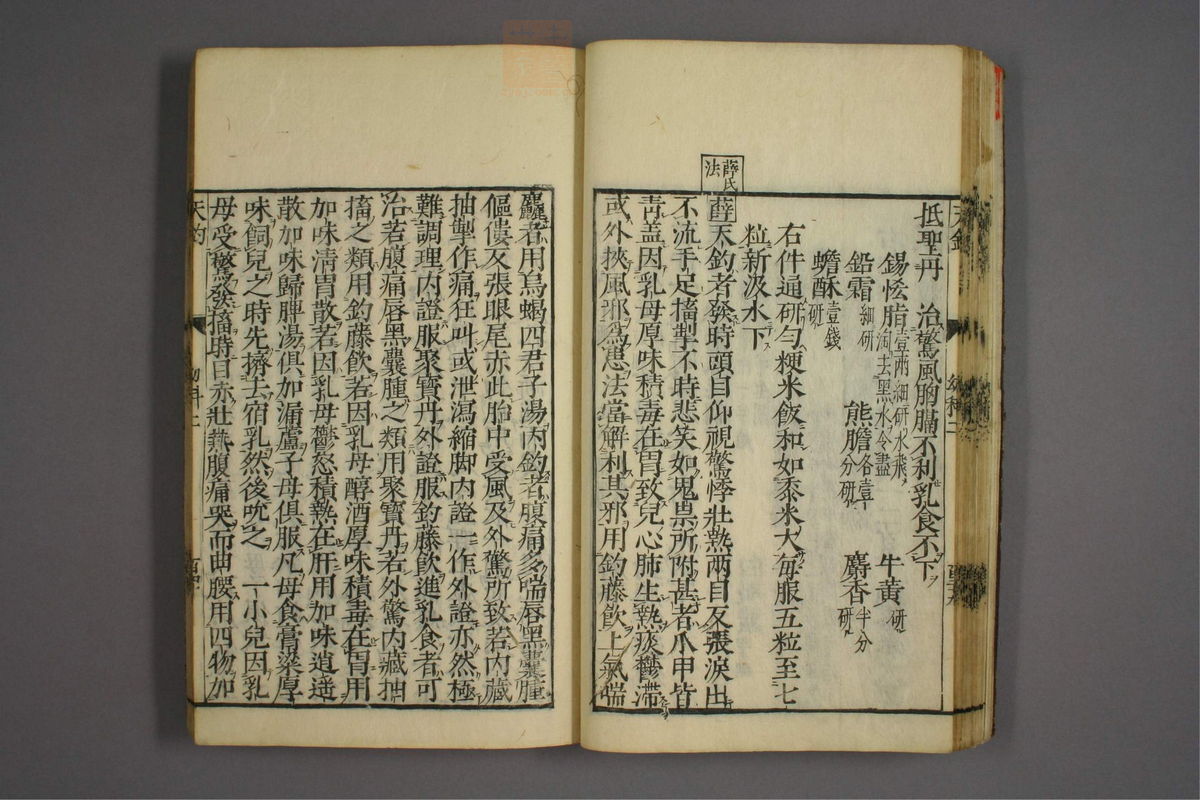 抵聖丹　治驚風胸膈不利乳食不下
錫恡脂壹兩細研水飛淘去黑水令盡　牛黃研
鉛霜細研　熊膽各壹分研　麝香半分研
蟾酥研壹錢
右件通研勻粳米飯和如黍米大每服五粒至七
粒新汲水下
薛氏法
薛天釣者發時頭目仰視驚悸壯熱兩目反張淚出
不流手足搐掣不時悲笑如鬼祟所附甚者爪甲皆
青盖因乳母厚味積毒在胃致兒心肺生熱痰鬱滯
或外挾風邪爲患法當解利其邪用釣藤飲上氣喘
麤者用烏蝎四君子湯內釣者腹痛多喘唇黑囊腫
傴僂反張眼尾赤此胎中受風及外驚所致若內藏
抽掣作痛狂叫或泄瀉縮脚內證一作外證亦然極
難調理內證服聚寶丹外證服釣藤飲進乳食者可
治若腹痛唇黑囊腫之類用聚寶丹若外驚內藏抽
搐之類用釣藤飲若因乳母醇酒厚味積毒在胃用
加味清胃散若因乳母鬱怒積熱在肝用加味逍遥
散加味歸脾湯俱加漏蘆子母俱服凡母食膏粱厚
味飼兒之時先擠去宿乳然後吮之　一小兒因乳
母受驚發搐時目赤壯熱腹痛哭而曲腰用四物加
天釣
幼科二